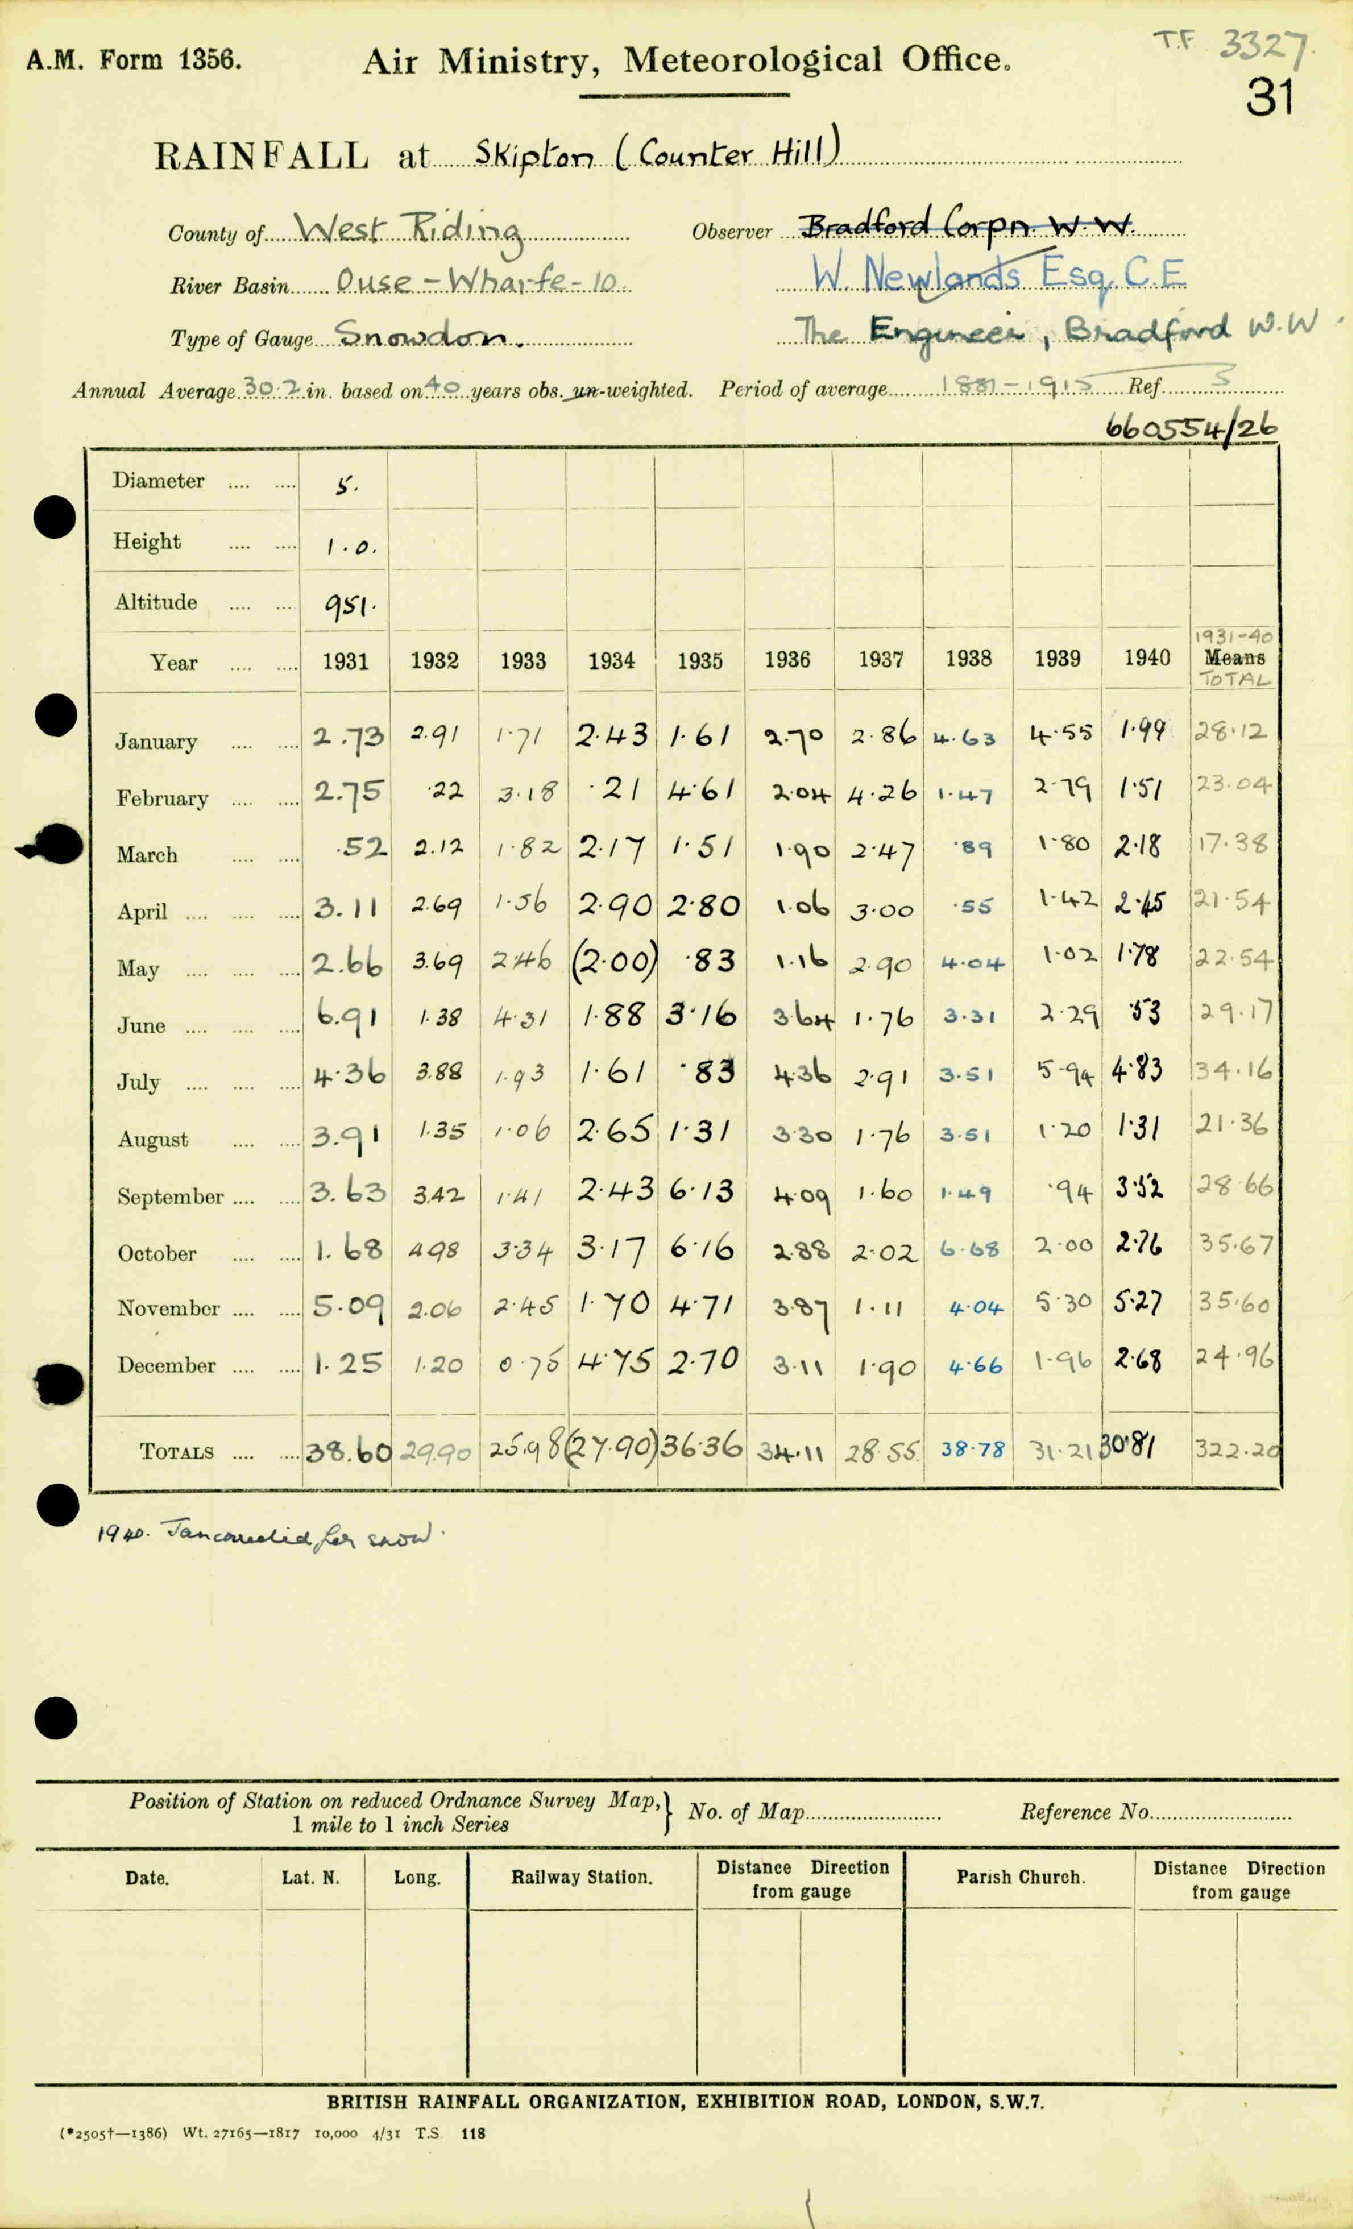 T.F. 3327.
A.M. Form 1356. Air Ministry, Meteorological Office.
31
RAINFALL at Skipton (Counter Hill)
County of West Riding Observer Bradford Corpn. W.W.
River Basin Ouse-Wharfe-10. W. Newlands Esq. C.E
Type of Gauge Snowdon. The Engineer, Bradford W.W.
Annual Average 30.2 in. based on 40 years obs. un-weighted. Period of average 1881-1915 Ref. 5
660554/26
Diameter .... .... 5.
Height .... .... 1.0.
Altitude .... .... 951.
1931-40
Year .... .... 1931 1932 1933 1934 1935 1936 1937 1938 1939 1940 Means
TOTAL
January .... .... 2.73 2.91 1.71 2.43 1.61 2.70 2.86 4.63 4.55 1.99 28.12
February .... .... 2.75 .22 3.18 .21 4.61 2.04 4.26 1.47 2.79 1.51 23.04
March .... .... .52 2.12 1.82 2.17 1.51 1.90 2.47 .89 1.80 2.18 17.38
April .... .... .... 3.11 2.69 1.56 2.90 2.80 1.06 3.00 .55 1.42 2.45 21.54
May .... .... .... 2.66 3.69 2.46 (2.00) .83 1.16 2.90 4.04 1.02 1.78 22.54
June .... .... .... 6.91 1.38 4.31 1.88 3.16 3.64 1.76 3.31 2.29 .53 29.17
July .... .... .... 4.36 3.88 1.93 1.61 .83 4.36 2.91 3.51 5.94 4.83 34.16
August .... .... 3.91 1.35 1.06 2.65 1.31 3.30 1.76 3.51 1.20 1.31 21.36
September .... .... 3.63 3.42 1.41 2.43 6.13 4.09 1.60 1.49 .94 3.52 28.66
October .... .... 1.68 4.98 3.34 3.17 6.16 2.88 2.02 6.68 2.00 2.76 35.67
November .... .... 5.09 2.06 2.45 1.70 4.71 3.87 1.11 4.04 5.30 5.27 35.60
December .... .... 1.25 1.20 0.75 4.75 2.70 3.11 1.90 4.66 1.96 2.68 24.96
TOTALS .... .... 38.60 29.90 25.98 (27.90) 36.36 34.11 28.55 38.78 31.21 30.81 322.20
1940. Jan corrected for snow.
Position of Station on reduced Ordnance Survey Map, } No. of Map Reference No.
1 mile to 1 inch Series
Date. Lat. N. Long. Railway Station. Distance Direction from gauge Parish Church. Distance Direction from gauge
BRITISH RAINFALL ORGANIZATION, EXHIBITION ROAD, LONDON, S.W.7.
(*2505†—1386) Wt. 27165—1817 10,000 4/31 T.S. 118